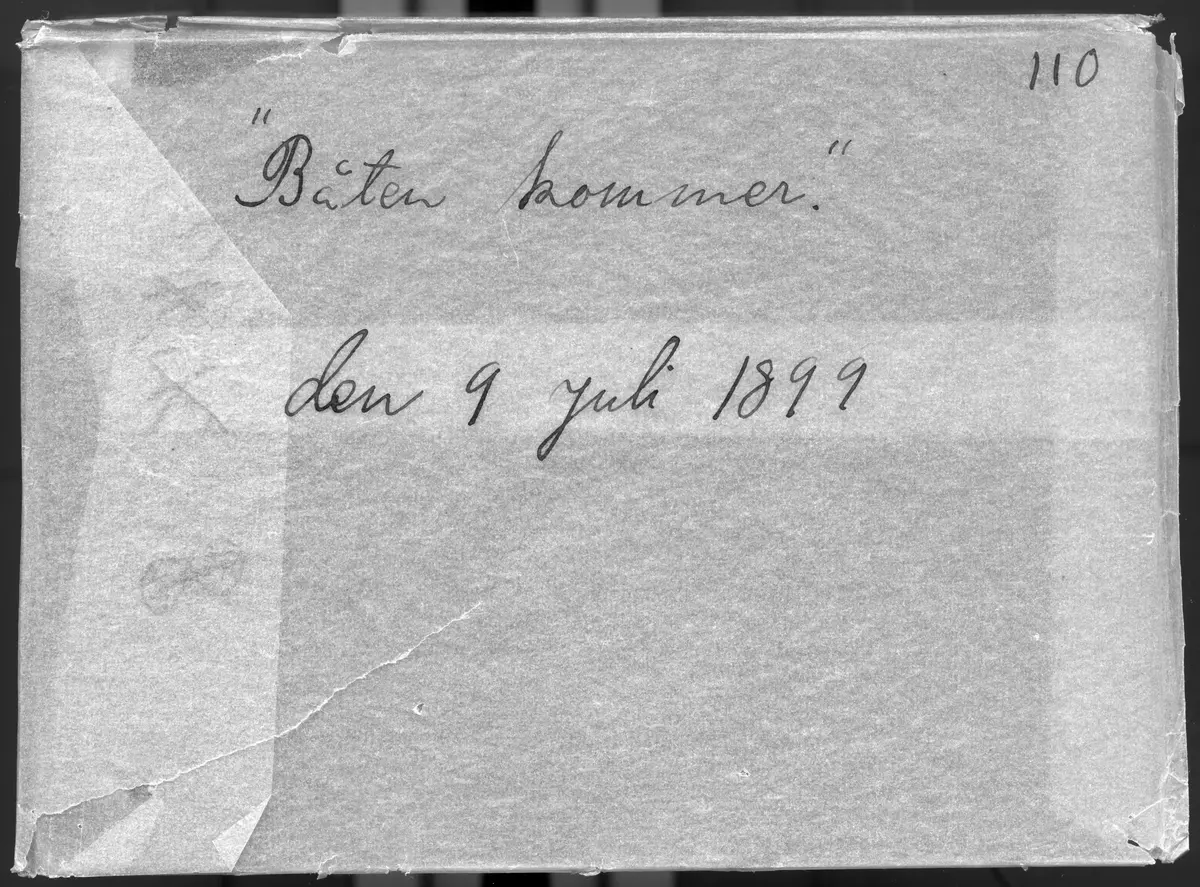 110
"Båten kommer."
den 9 juli 1899